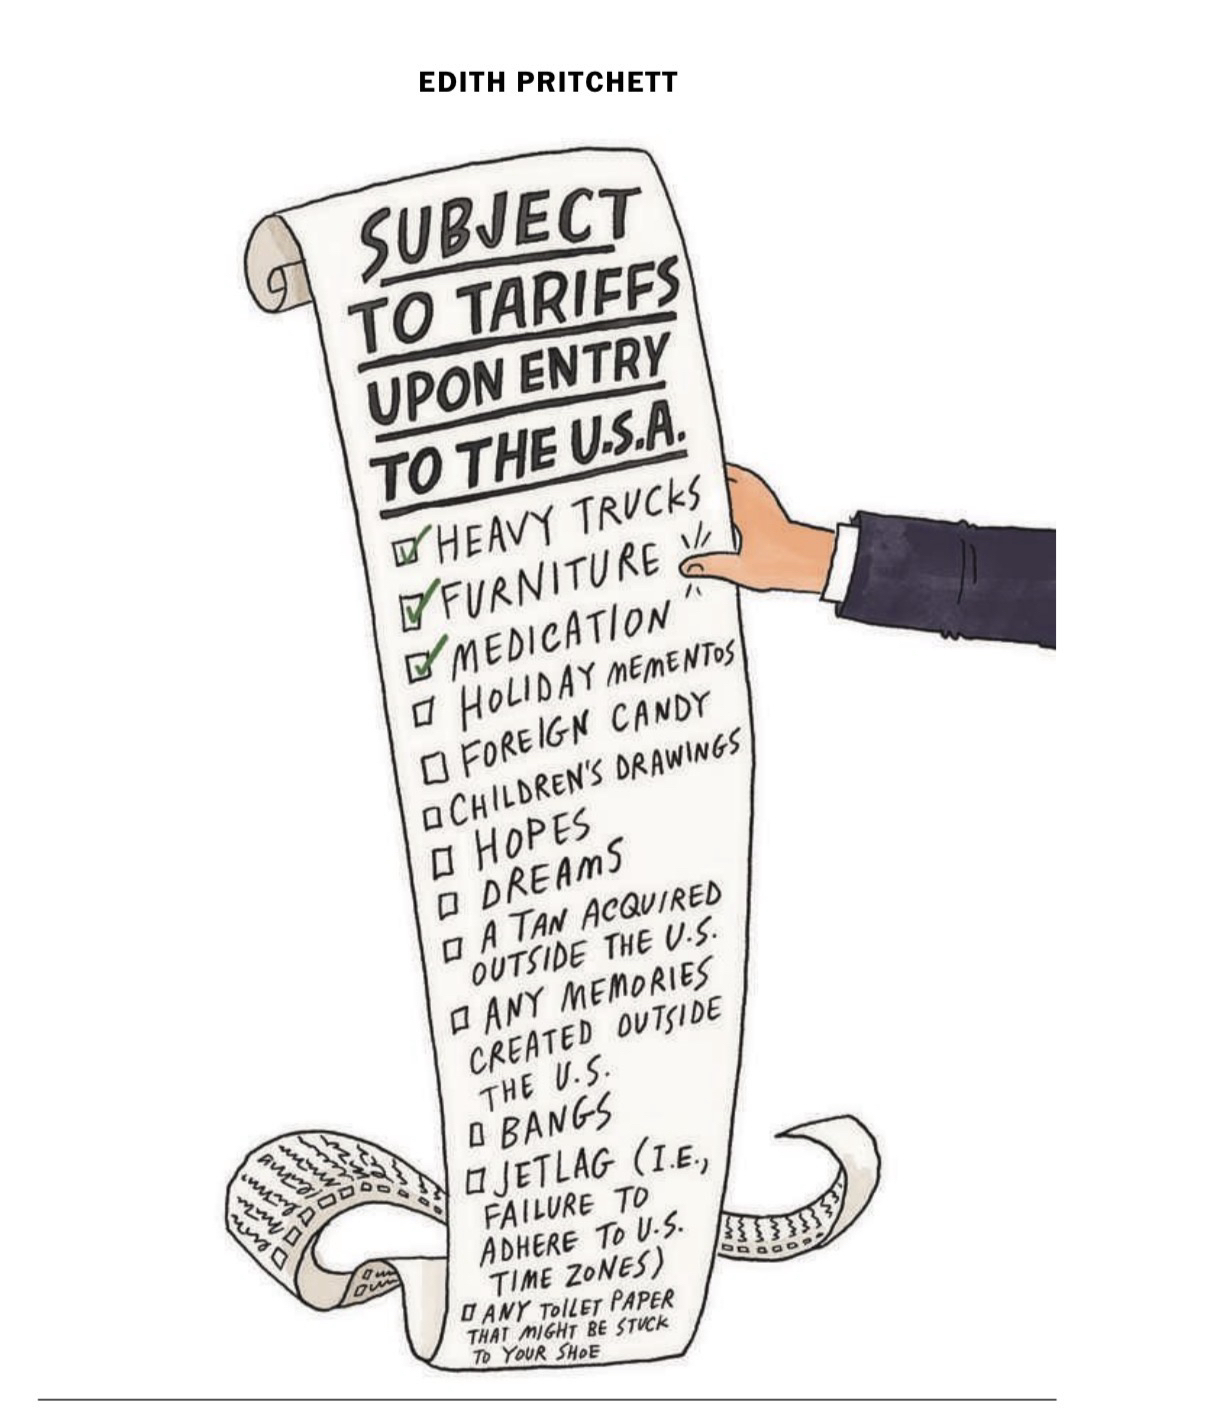 EDITH PRITCHETT
SUBJECT
TO TARIFFS
UPON ENTRY
TO THE U.S.A.
HEAVY TRUCKS
FURNITURE
MEDICATION
HOLIDAY MEMENTOS
FOREIGN CANDY
CHILDREN'S DRAWINGS
HOPES
DREAMS
A TAN ACQUIRED
OUTSIDE THE U.S.
ANY MEMORIES
CREATED OUTSIDE
THE U.S.
BANGS
JETLAG (I.E.,
FAILURE TO
ADHERE TO U.S.
TIME ZONES)
ANY TOILET PAPER
THAT MIGHT BE STUCK
TO YOUR SHOE